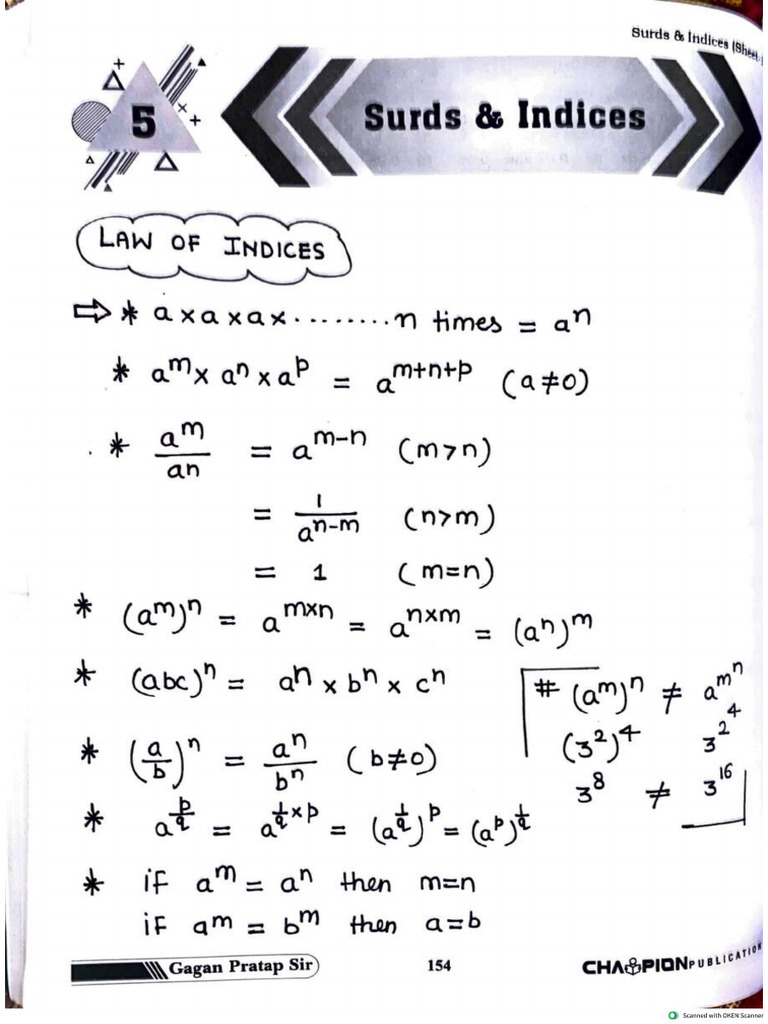 Surds & Indices (Sheet
5
Surds & Indices
LAW OF INDICES
⇨ * a × a × a × ........ n times = aⁿ
* aᵐ × aⁿ × aᵖ = aᵐ⁺ⁿ⁺ᵖ (a≠0)
* aᵐ/aⁿ = aᵐ⁻ⁿ (m>n)
= 1/aⁿ⁻ᵐ (n>m)
= 1 (m=n)
* (aᵐ)ⁿ = a^(m×n) = a^(n×m) = (aⁿ)ᵐ
* (abc)ⁿ = aⁿ × bⁿ × cⁿ
# (aᵐ)ⁿ ≠ a^m^n
(3²)⁴ 3^2^4
3⁸ ≠ 3¹⁶
* (a/b)ⁿ = aⁿ/bⁿ (b≠0)
* a^(p/q) = a^(1/q × p) = (a^(1/q))^p = (a^p)^(1/q)
* if aᵐ = aⁿ then m=n
if aᵐ = bᵐ then a=b
Gagan Pratap Sir
154
CHAMPION PUBLICATION
Scanned with OKEN Scanner